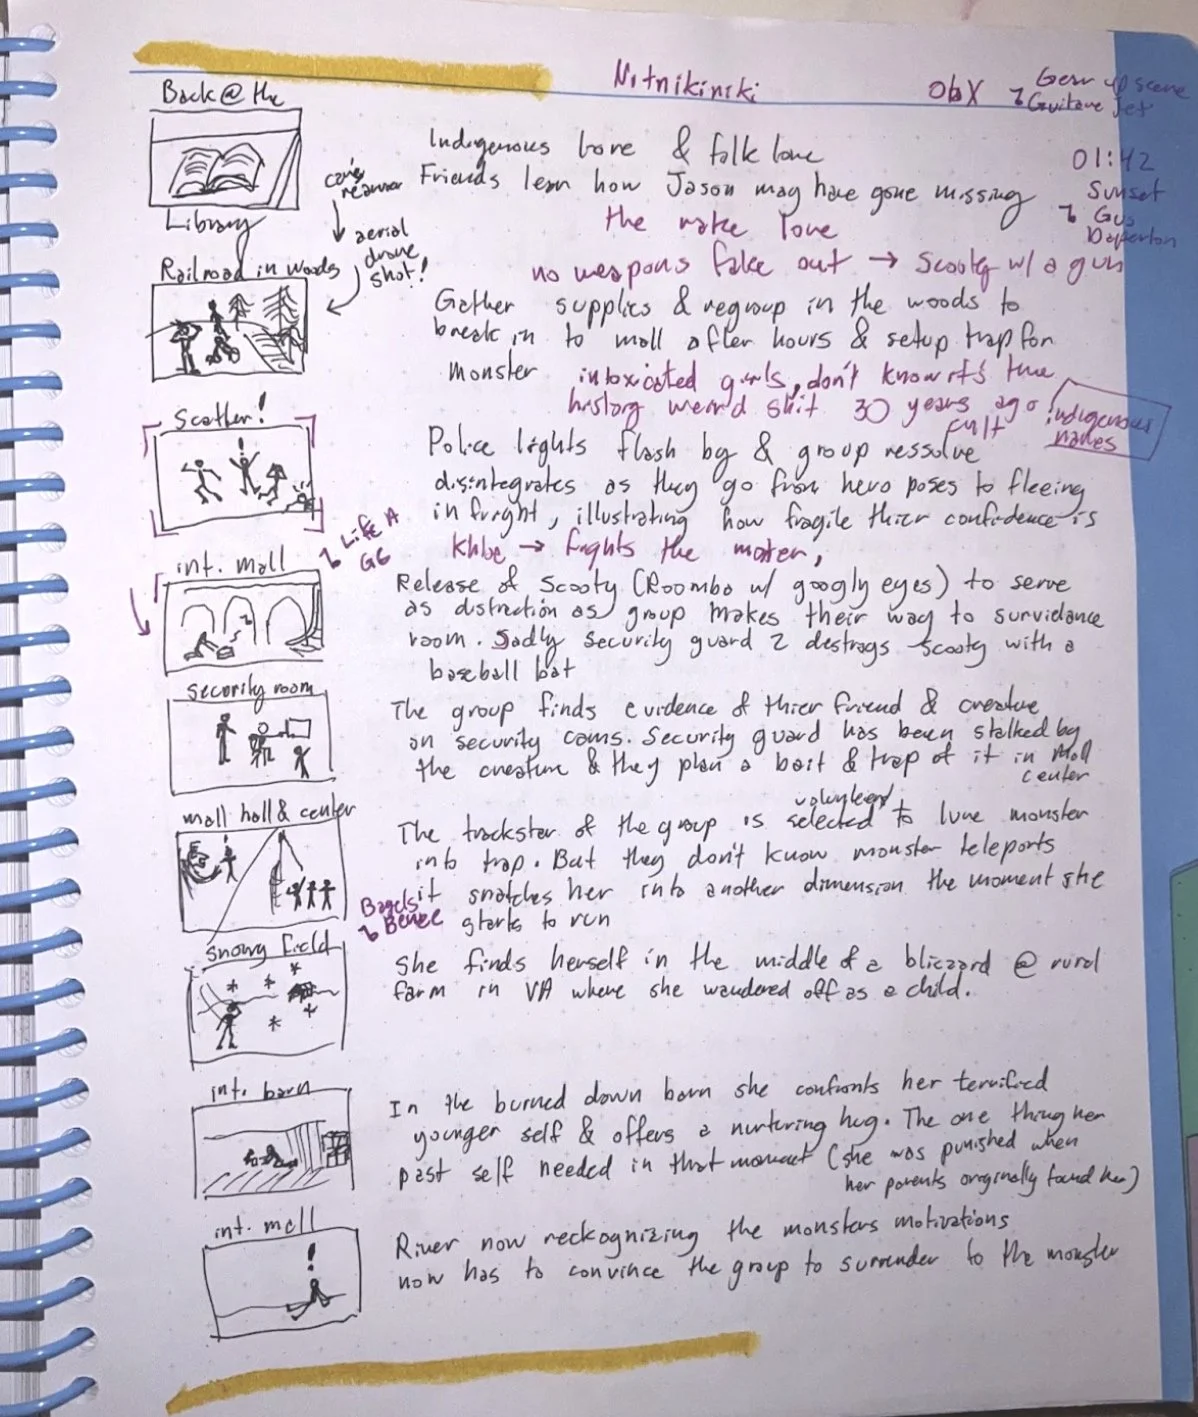 Nitnikiniki
ObX
Gear up scene
↴ Guitare Jet
Back @ the
Library
Indigenous lore & folk lore
Friends lern how Jason may have gone missing
01:42
Sunset
↴ Gus
Daperton
the make love
no weapons fake out → Scooty w/ a gun
aerial
drone
shot!
Railroad in woods
Gather supplies & regroup in the woods to
break in to mall after hours & setup trap for
monster
intoxicated girls, don't know it's true
history weird shit 30 years ago
cult
indigenous
names
Scatter!
Police lights flash by & group ressolve
disintegrates as they go from hero poses to fleeing
in fright, illustrating how fragile thier confidence is
Khloe → fights the
↴ Life A
GG
int. mall
Release of Scooty (Roomba w/ googly eyes) to serve
as distrction as group makes their way to survidance
room. Sadly security guard 2 destroys Scooty with a
baseball bat
security room
The group finds evidence of thier friend & creature
on security cams. Security guard has been stalked by
the creature & they plan a bait & trap of it in Mall
center
mall hall & center
The trackstar of the group is selected to lure monster
into trap. But they don't know monster teleports
it snatches her into another dimension the moment she
starts to run
Bagels
↴ Benee
snowy field
She finds herself in the middle of a blizzard @ rural
farm in VA where she wandered off as a child.
int. barn
In the burned down barn she confronts her terrified
younger self & offers a nurturing hug. The one thing her
past self needed in that moment (she was punished when
her parents originally found her)
int. mall
River now reckognizing the monsters motivations
now has to convince the group to surrender to the monster